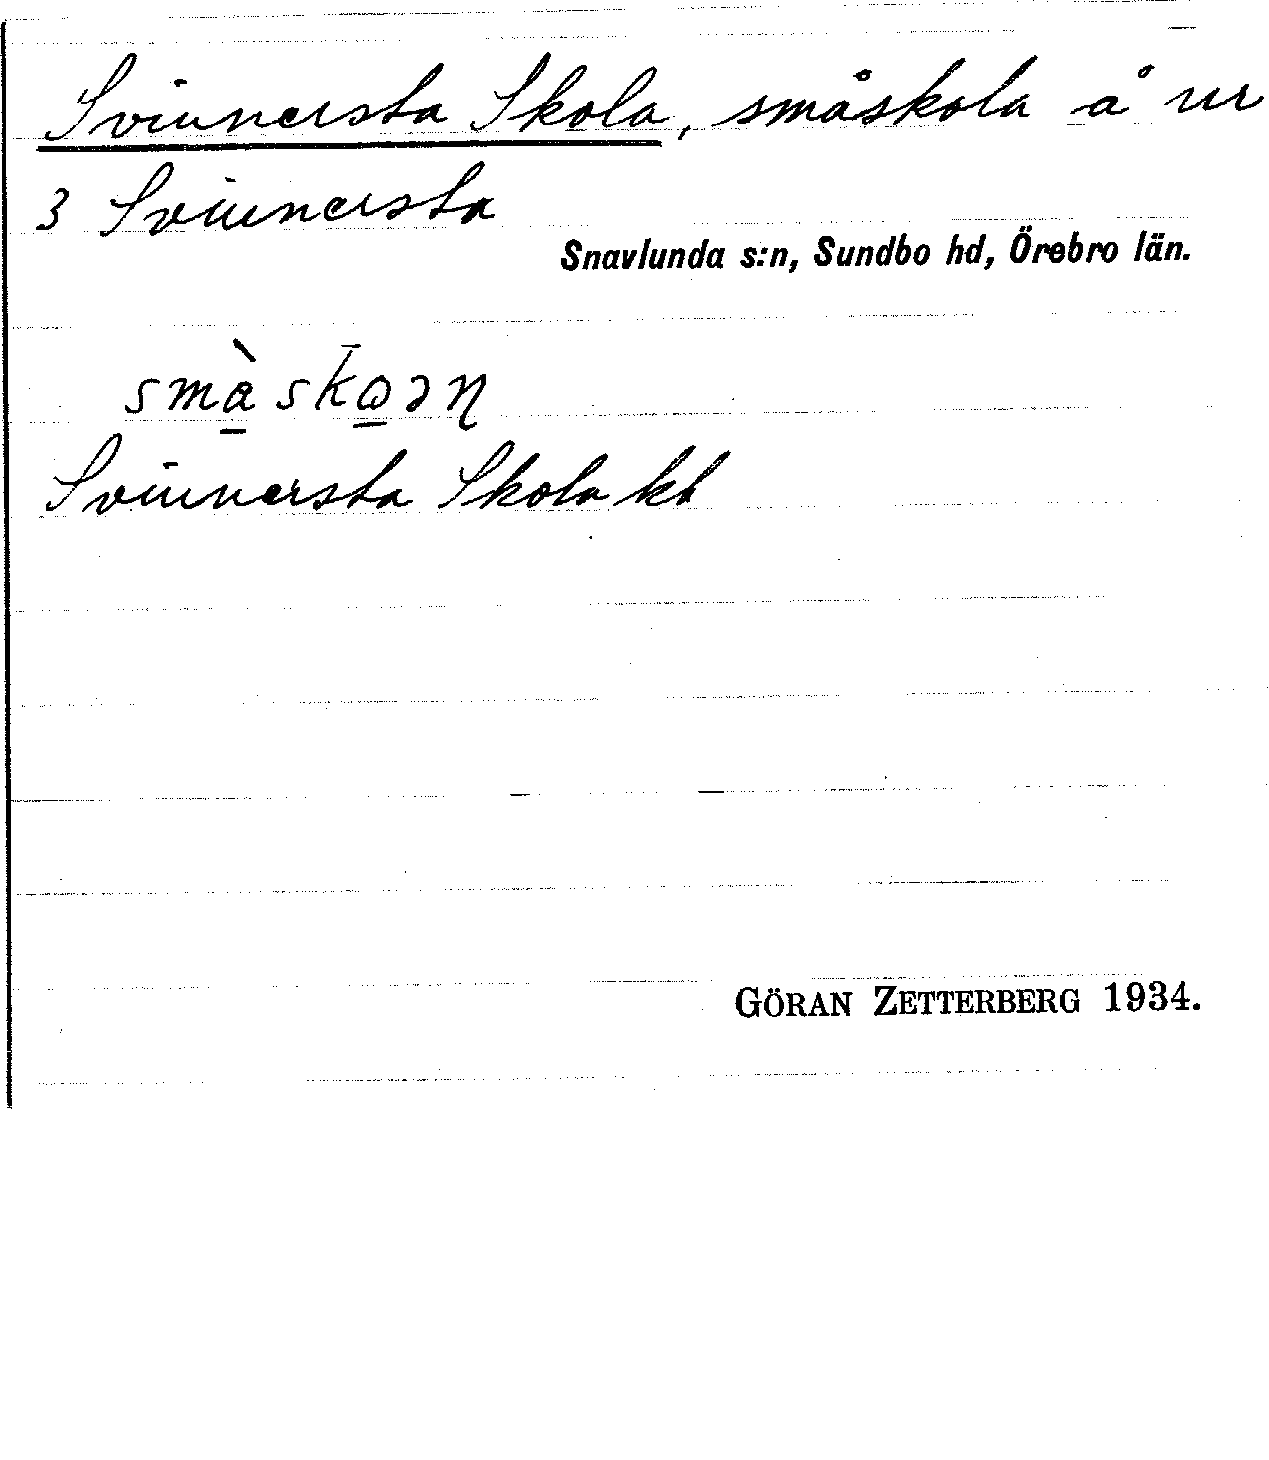 Svinnersta Skola, småskola å nr
3 Svinnersta
Snavlunda s:n, Sundbo hd, Örebro län.
Svinnersta Skola kt
GÖRAN ZETTERBERG 1934.